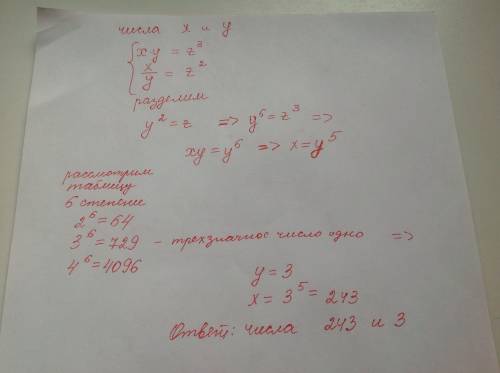 числа x и y
{ xy = z³
x/y = z²
разделим
y² = z => y⁶ = z³ =>
xy = y⁶ => x = y⁵
рассмотрим
таблицу
6 степени
2⁶ = 64
3⁶ = 729 - трехзначное число одно =>
4⁶ = 4096
y = 3
x = 3⁵ = 243
Ответ: числа 243 и 3